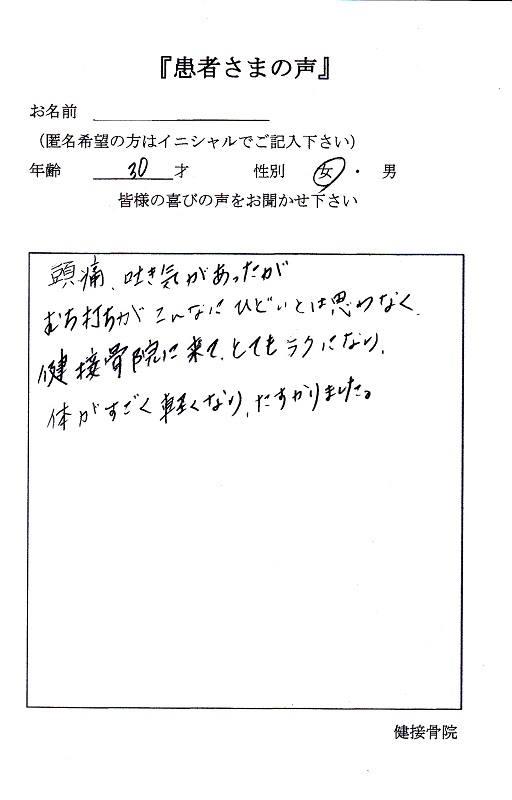 『患者さまの声』
お名前
（匿名希望の方はイニシャルでご記入下さい）
年齢 30 才 性別 女 ・ 男
皆様の喜びの声をお聞かせ下さい
頭痛、吐き気があったが
むち打ちがこんなにひどいとは思わなく、
健接骨院に来て、とてもラクになり、
体がすごく軽くなり、たすかりました。
健接骨院